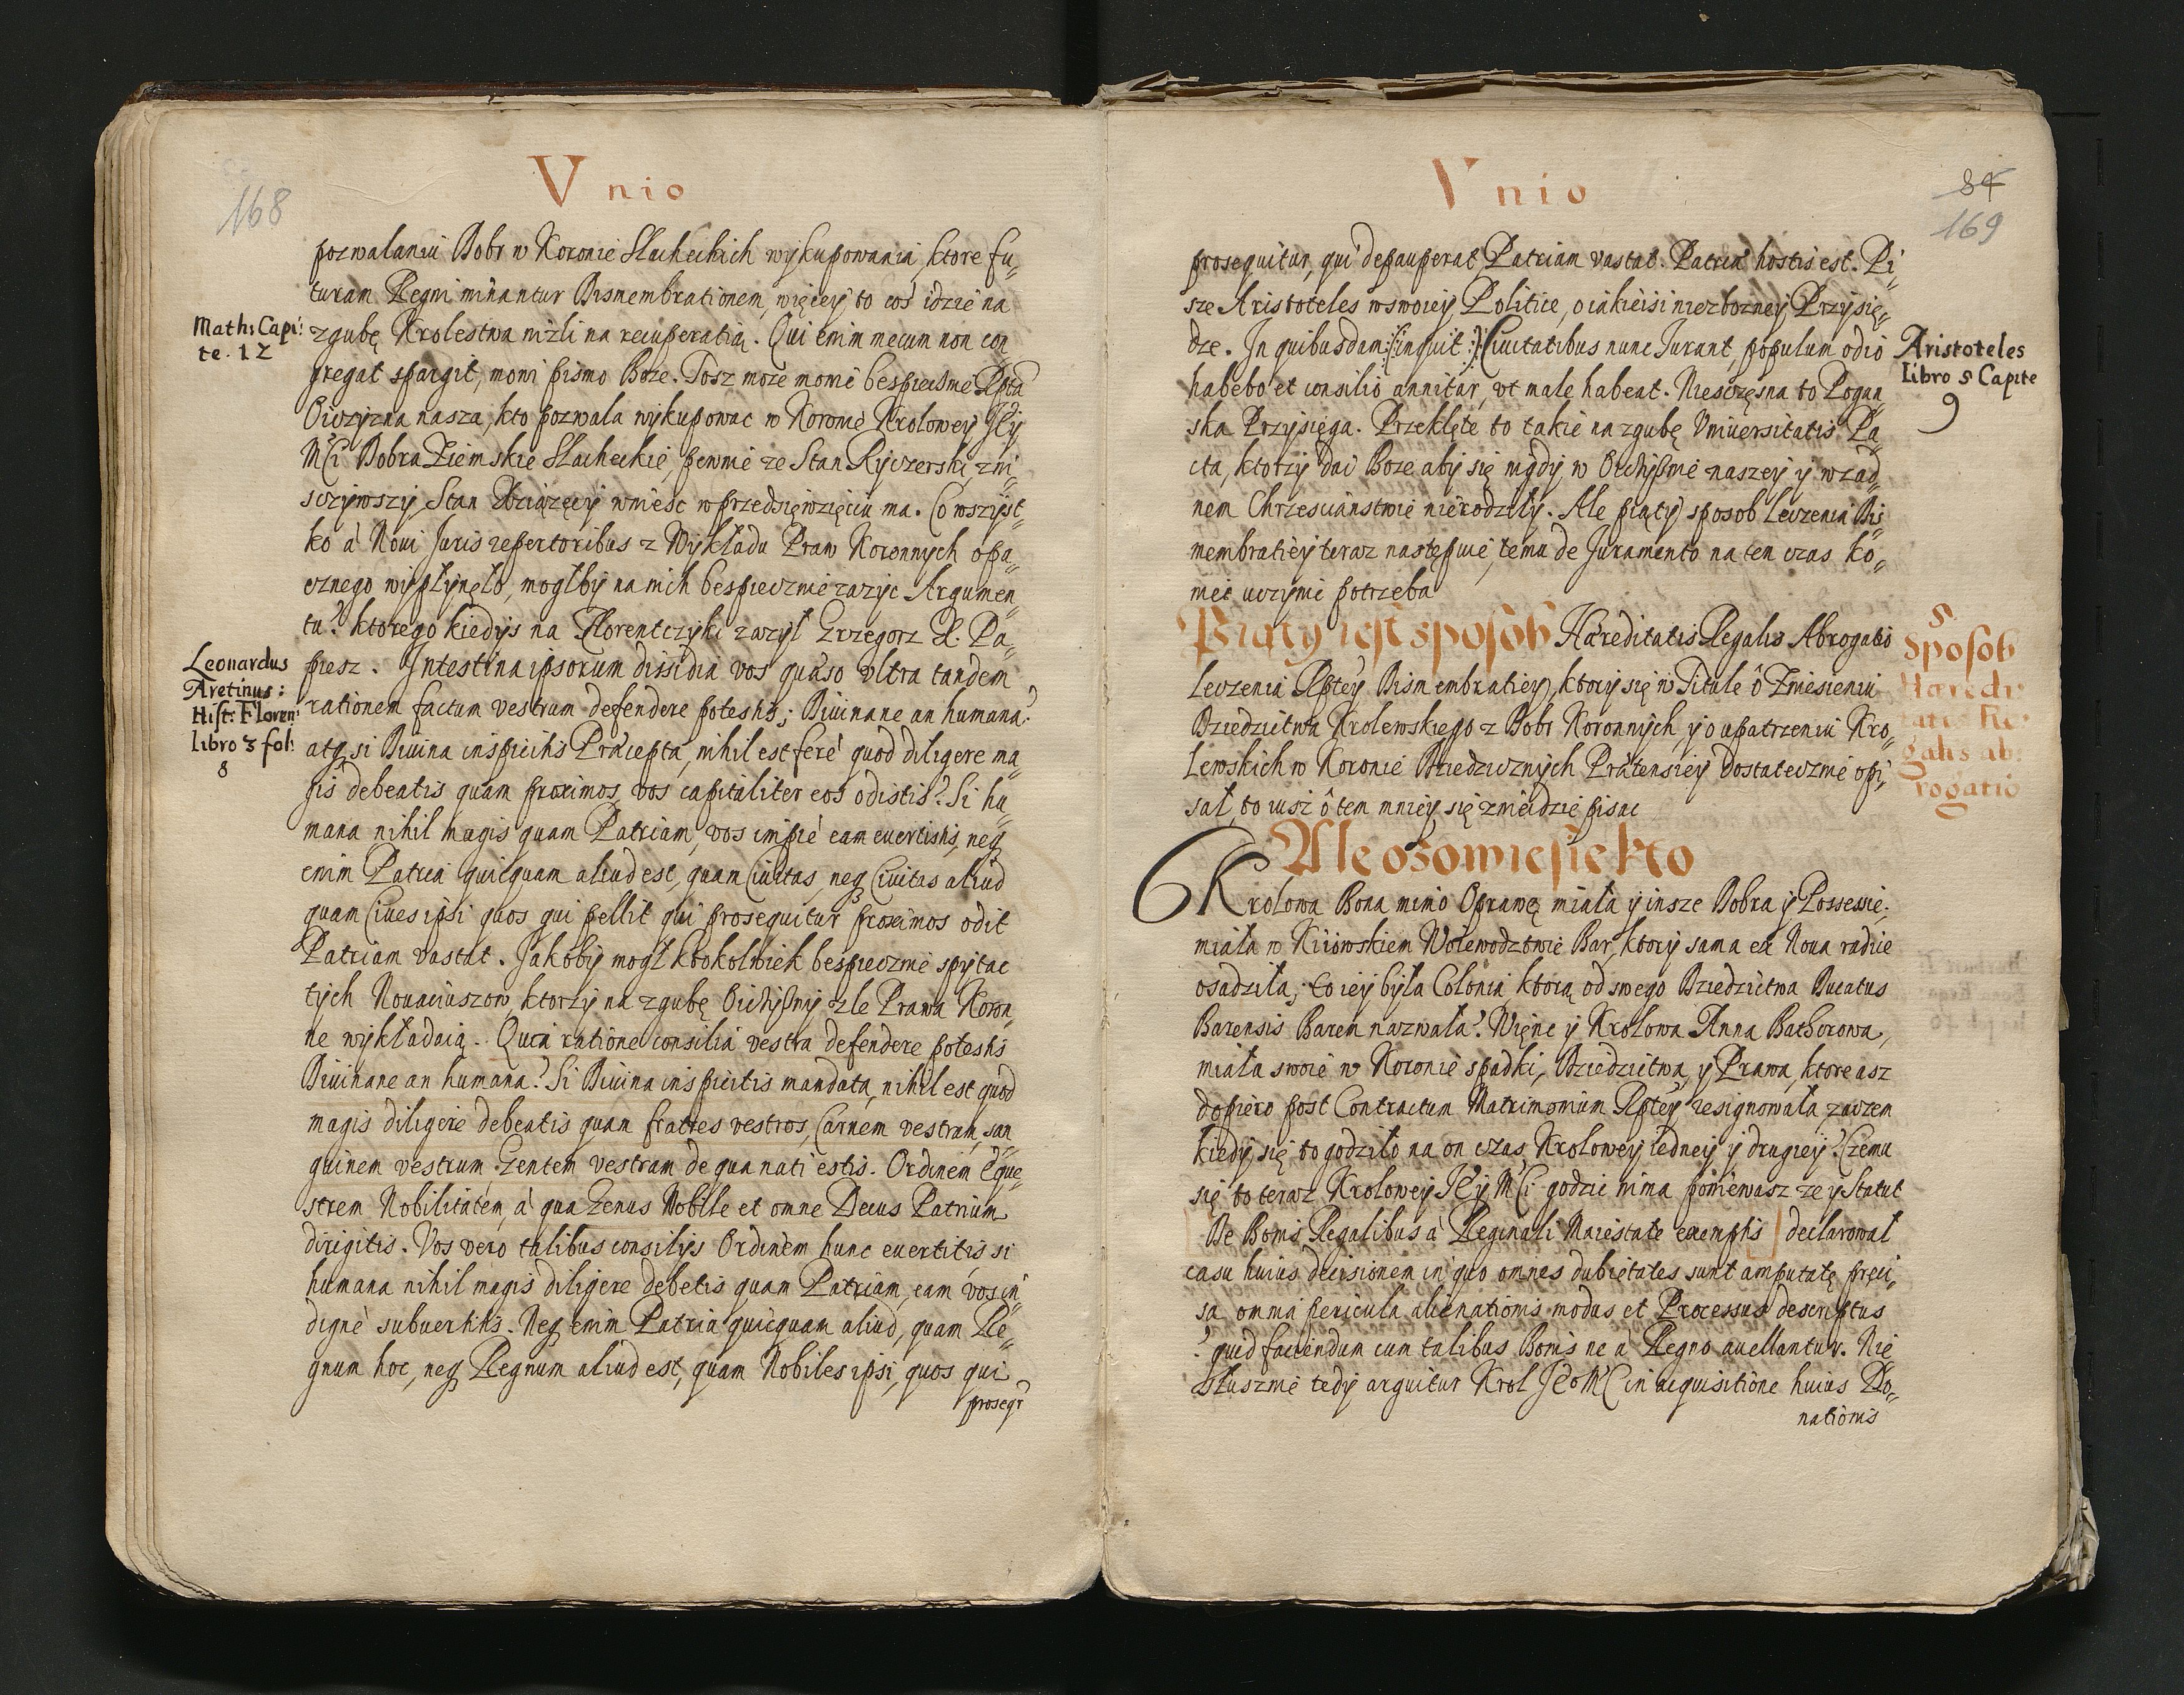 168
Unio
pozwalaniu Dobr w Koronie Slacheckich wykupowania, ktore fu„
turam Regni minantur Dismembrationem, więcey to coś idzie na
Math: Capi:
te. 12
zgubę Krolestwa niżli na recuperatią. Qui enim mecum non con
gregat spargit, mowi pismo Boże. Tosz może mowic bespiecznie Rpta
Oiczyzna nasza, kto pozwala wykupowac w Koronie Krolowey JEy
MCi Dobra Ziemskie Slacheckie, pewnie ze Stan Ryczerski zni„
sczywszy, Stan Xsiążęcy wniesc w przedsięwzięciu ma. Co wszyst„
ko à Noui Juris repertoribus z Wykładu Praw Koronnych opa„
cznego wypłynęło, mogłby na nich bespiecznie zazyc Argumen„
tu? ktorego kiedys na Florentczyki zazył Grzegorz X. Pa„
Leonardus
Aretinus:
Hist: Floren:
libro 3 fol:
8
piesz. Intestina ipsorum dissidia vos quæso vltra tandem
rationem factum vestrum defendere potestis; Diuinane an humana?
atq si Diuina inspicitis Præcepta, nihil est ferè quod diligere ma„
gis debeatis quam proximos, vos capitaliter eos odistis? Si hu„
mana nihil magis quam Patriam, vos impiè eam euertistis, neq
enim Patria quicquam aliud est, quam Ciuitas, neq Ciuitas aliud
quam Ciues ipsi quos qui pellit qui prosequitur proximos odit
Patriam vastat. Jakoby mogł ktokolwiek bespiecznie spytac
tych Nouaciuszow ktorzy na zgubę Oiczyzny zle Prawa Koron„
ne wykładaią. Qura ratione consilia vestra defendere potestis
Diuinane an humana? Si Diuina inspicitis mandata, nihil est quod
magis diligere debeatis quam fratres vestros, Carnem vestram, san„
guinem vestrum, Gentem vestram de qua nati estis. Ordinem Eque„
strem Nobilitatem, à qua Genus Nobile et omne Decus Patrium
dirigitis. Vos vero talibus consilijs Ordinem hunc euertitis si
humana nihil magis diligere debetis quam Patriam, eam vos in„
dignè subuertitis. Neq enim Patria quicquam aliud, quam Re„
gnum hoc, neq Regnum aliud est, quam Nobiles ipsi, quos qui
prosegr
84
169
Unio
prosequitur, qui depauperat Patriam vastat. Patriæ hostis est. Pi„
sze Aristoteles w swoiey Politice, o iakieisi niezbozney Przysię„
Aristoteles
Libro 5 Capite
9
dze. In quibusdam (:inquit:) Ciuitatibus nunc Jurant, populum odio
habebo et consilio annitar, vt male habeat. Niesczęsna to Pogan„
ska Przysięga. Przeklęte to takie na zgubę Vniuersitatis Pa„
cta, ktorzy dai Boze aby się nigdy w Oiczyznie naszey y w zad„
nem Chrzescianstwie nierodziły. Ale piąty sposob Leczenia Dis„
membratiey teraz następuie, temu de Juramento na ten czas ko„
niec uczynic potrzeba
Piąty iest sposob Hæreditatis Regalis Abrogatio
5
Sposob
Hæredi„
tatis Re„
galis ab„
rogatio
Leczenia Rptey Dismembratiey, ktory się w Titule ô Zniesieniu
Dziedzictwa Krolewskiego z Dobr Koronnych, y o upatrzeniu Kro„
Lewskich w Koronie Dziedzicznych Prætensiey dostatecznie opi„
sał, to iusz ô tem mniey się zmieidzie pisac
Ale ozowie sie kto
Krolowa Bona mimo Oprawę miała y insze Dobra y Possessie,
miała w Kiiowskiem Woiewodztwie Bar, ktory sama ex Noua radice
osadziła, Co iey była Colonia, ktorą od swego Dziedzictwa Ducatus
Barensis Barem nazwała? Więnc y Krolowa Anna Bathorowa,
miała swoie w Koronie spadki, Dziedzictwa, y Prawa, ktore asz
dopiero post Contractum Matrimonium Rptey resignowała, zaczem
kiedy się to godziło na on czas Krolowey iedney y drugiey? Czemu
się to teraz Krolowey JEy MCi godzic nima poniewasz ze y Statut
De Bonis Regalibus à Reginali Maiestate exemptis declarował
casu huius decisionem in quo omnes dubietates sunt amputatę pręci„
sa omnia pericula alienationis modus et Processus descriptus
? quid faciendum cum talibus Bonis ne à Regno auellantur. Nie
Słusznie tedy arguitur Krol JEo MC in acquisitione huius Do„
nationis